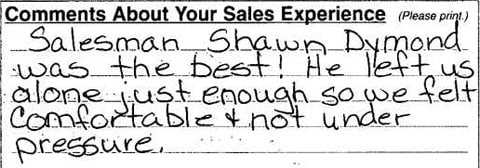 Comments About Your Sales Experience (Please print.)
Salesman Shawn Dymond
was the best! He left us
alone just enough so we felt
comfortable & not under
pressure.